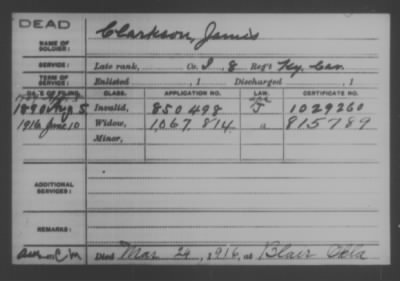 DEAD
NAME OF SOLDIER: Clarkson, James
SERVICE: Late rank, Co. I, 8 Reg't Ky. Cav.
TERM OF SERVICE: Enlisted , 1 Discharged , 1
DATE OF FILING. CLASS. APPLICATION NO. LAW. CERTIFICATE NO.
1890 Aug 5 Invalid, 850498 J 1029260
1916 June 10 Widow, 1,067,814 a 815789
Minor,
ADDITIONAL SERVICES:
REMARKS:
Died Mar 24, 1916, at Blair Okla